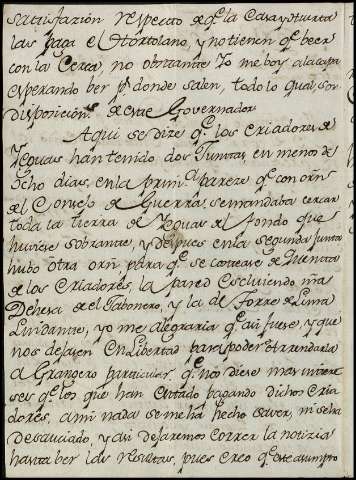 satisfazion respecto de qe. la Casa y Huerta
las paga el Hortolano, y no tienen qe. beer
con la Cerca, no obstante Yo me boy a la capa
esperando ber pr. donde salen, todo lo qual, son
disposicions. de este Governador
Aqui se dize qe. los Criadores de
Yeguas han tenido dos Juntas, en menos de
Ocho dias, en la primra. pareze qe. con orn.
del Consejo de Guerra, se mandaba cercar
toda la tierra de Yeguas del fondo que
huviese sobrante, y despues en la segunda Junta
hubo otra orn. para qe. se costease de quenta
de los Criadores, la pared Escluiendo, nra.
Dehesa de el Tabonero, y la de Torre de Luna
Lindante, yo me alegraria qe. asi fuese, y que
nos dejasen En Libertad para poder Arrendarla
a Grangero particular qe. nos diese mas interes
ser qe. los que han Estado pagando dichos Cria
dores, a mi nada se me ha hecho saver, ni se ha
desauciado, y asi dejaremos correr la notizia
hasta ber las resultas, pues creo qe. este asumpto